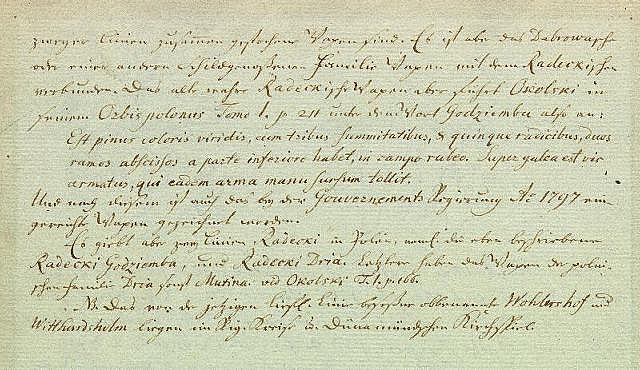 zweyer Linien zusammen gestochene Wapen sind. Es ist aber das Dabrowasche
oder einer andern Schildgenossenen Familie Wapen mit dem Radeckischen
verbunden. Das alte wahre Radeckische Wapen aber führet Okolski in
seinem Orbis polonus Tomo I. p 211 unter dem Wort Godziemba also an:
Est pinus coloris viridis, cum tribus summitatibus, & quinque radicibus, duos
ramos abscissos a parte inferiore habet, in campo rubeo. Super galea est vir
armatus, qui eadem arma manu sursum tollit.
Und nach diesem ist auch das bey der Gouvernements Regierung Ao 1797 ein
gereichte Wapen gezeichnet worden.
Es giebt aber zwey Linien, Radecki in Polen, die eben beschriebene
Radecki Godziemba, und Radecki Dria. Letztere haben das Wapen der polni
schen Familie Dria sonst Mutina. vid Okolski T. I. p. 166.
NB. Das von der jetzigen Linie besessene obbenannte Wohlershof und
Witthardsholm liegen im Rig. Kreise u. Dünamündschen Kirchspiel.